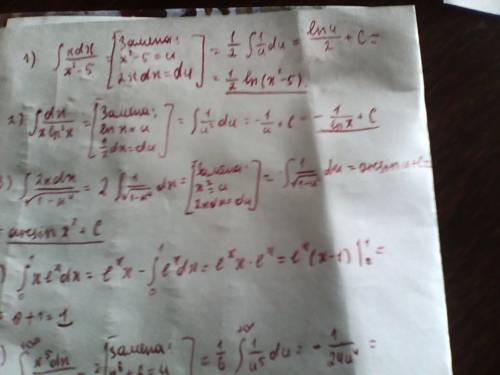 1) ∫ xdx/(x²-5) = [Замена: x²-5=u 2xdx=du] = 1/2 ∫ 1/u du = ln u/2 + C =
= 1/2 ln(x²-5).
2) ∫ dx/(x ln²x) = [Замена: ln x = u 1/x dx = du] = ∫ 1/u² du = -1/u + C = -1/ln x + C
3) ∫ 2xdx/√(1-x⁴) = 2 ∫ 1/√(1-x⁴) dx = [Замена: x²=u 2xdx=du] = ∫ 1/√(1-u²) du = arcsin u + C =
= arcsin x² + C
) ∫₀¹ xeˣdx = eˣx - ∫₀¹ eˣdx = eˣx - eˣ = eˣ(x-1)|₀¹ =
= 0+1 = 1
) ∫^{+∞} x⁵dx = [Замена: x⁶+6=u] = 1/6 ∫^{+∞} 1/u⁵ du = - 1/24u⁴ =